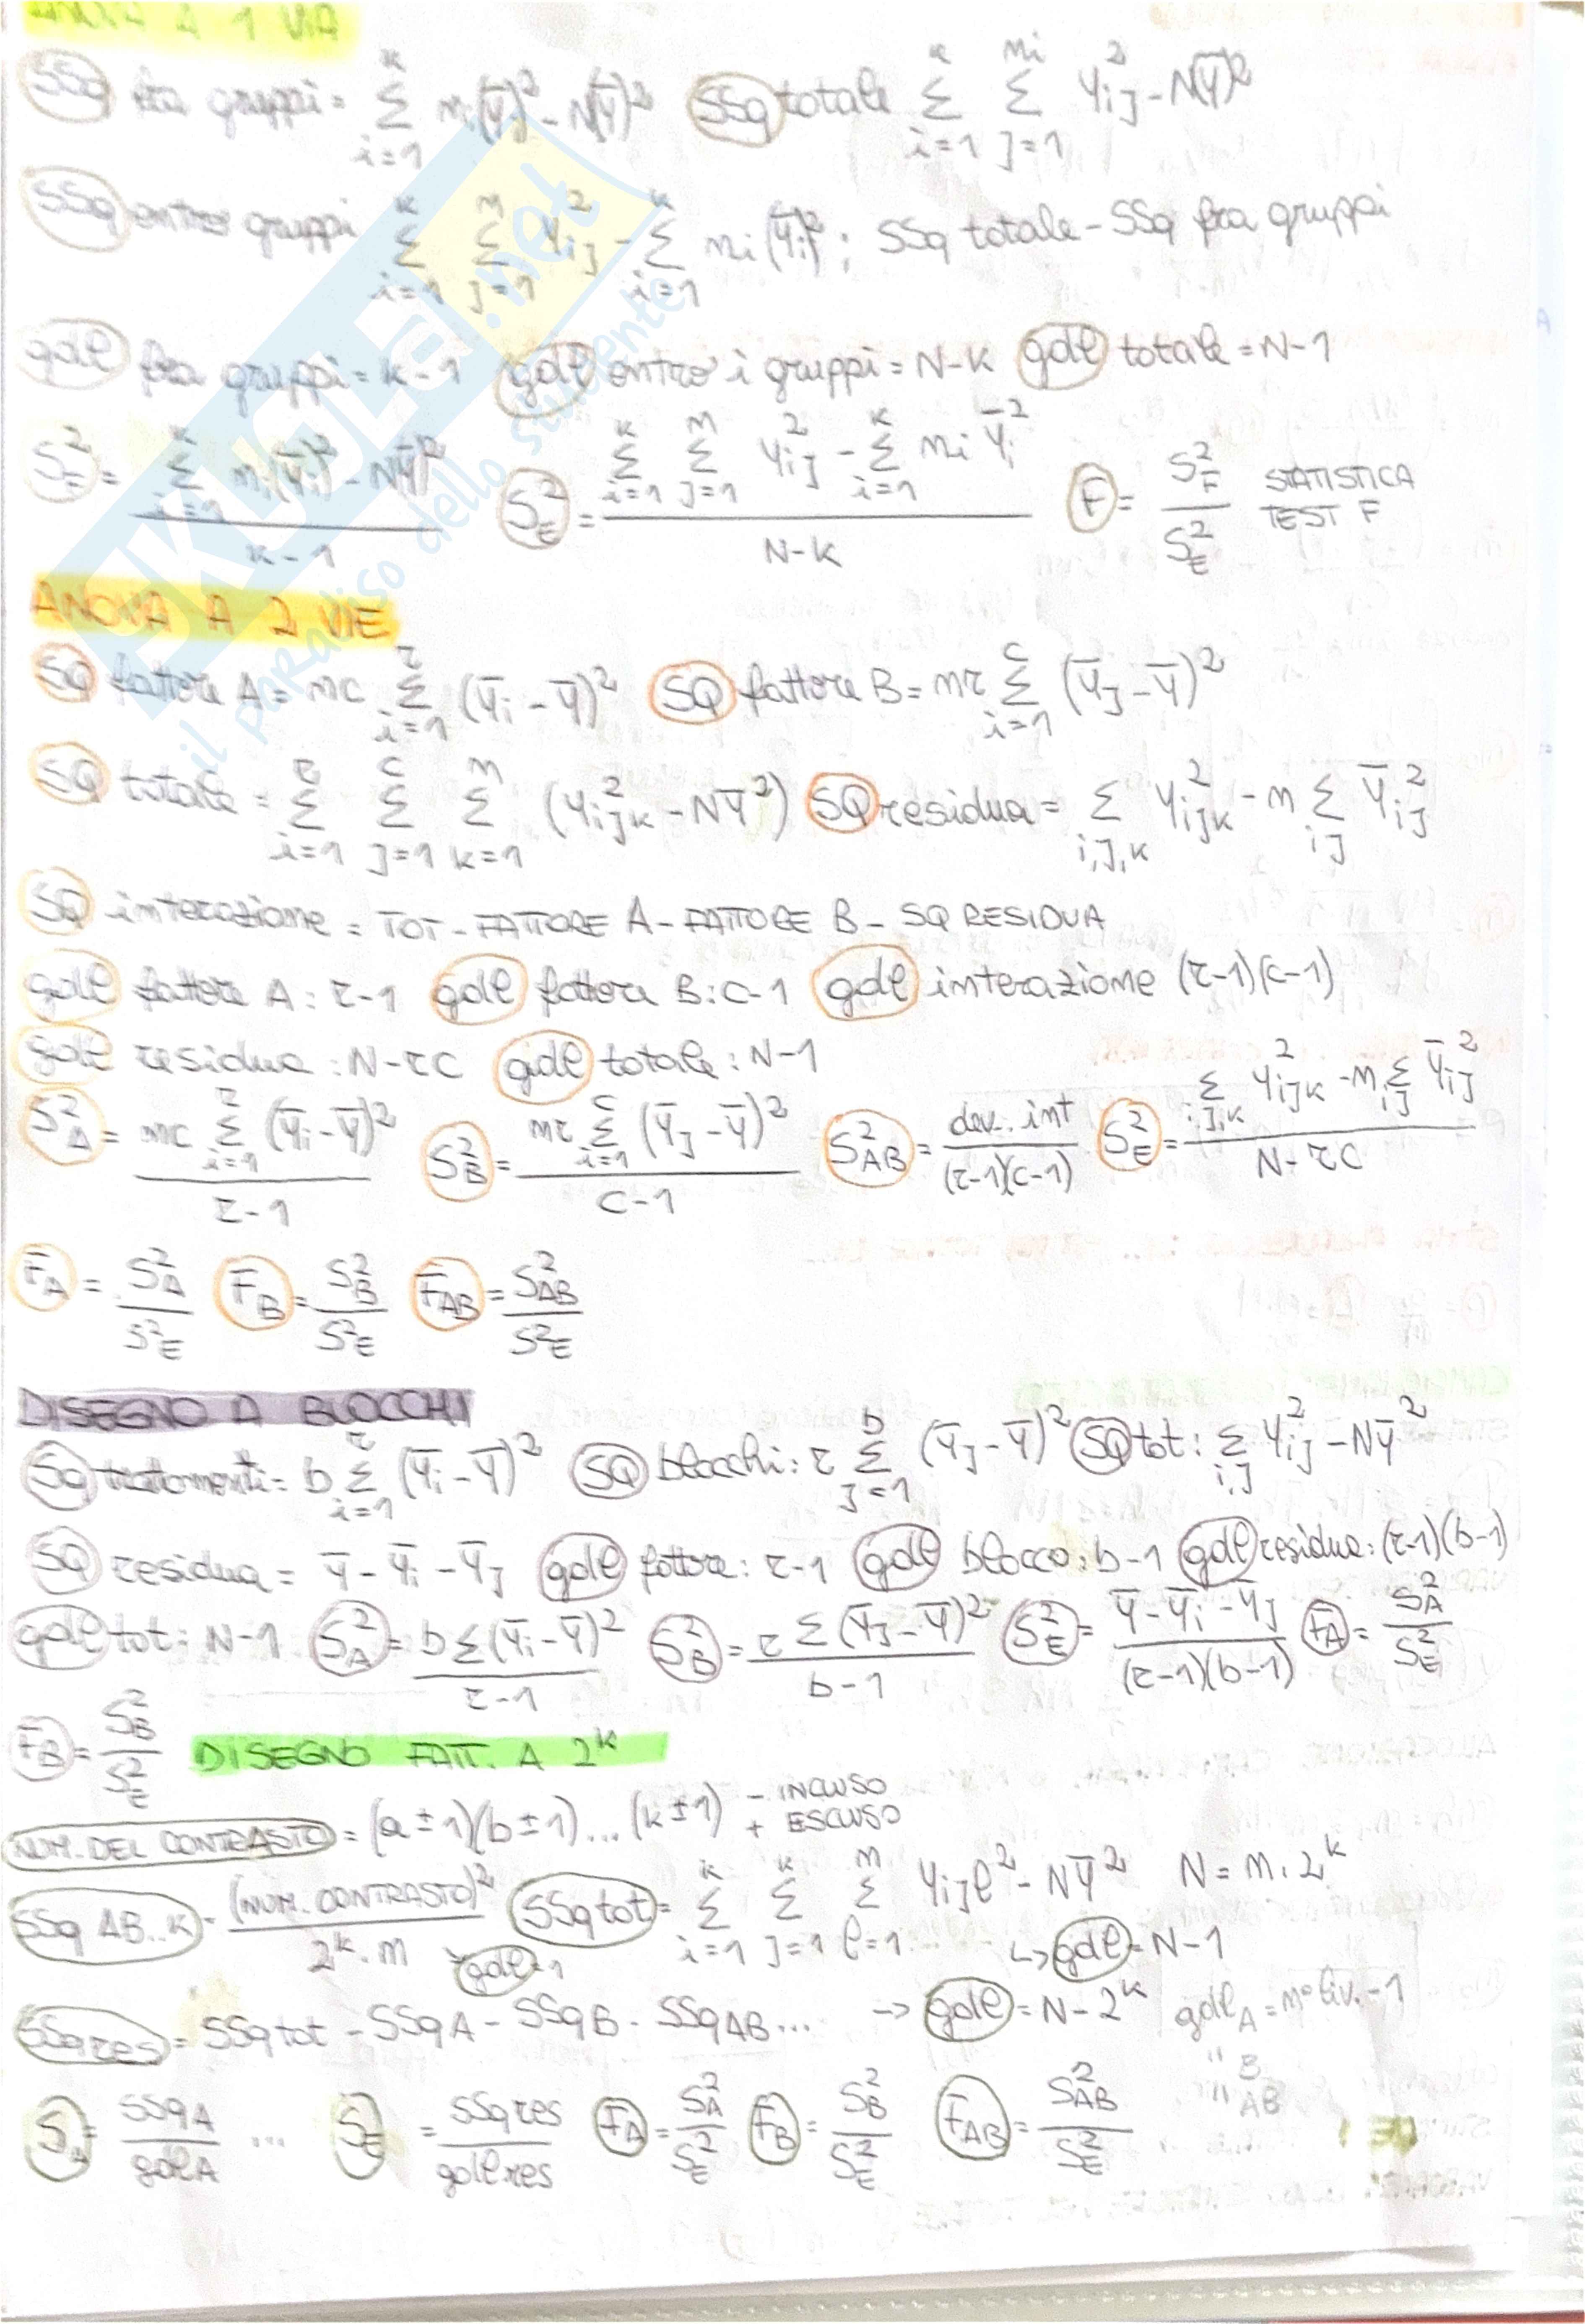 ANOVA A 1 VIA
SSq fra gruppi = Σ_{i=1}^{k} ni(Ȳi)² - N(Ȳ)² SSq totale Σ_{i=1}^{k} Σ_{J=1}^{ni} Y²iJ - N(Ȳ)²
SSq entro gruppi Σ_{i=1}^{k} Σ_{J=1}^{n} Y²iJ - Σ_{i=1}^{k} ni(Ȳi)²; SSq totale - SSq fra gruppi
gdl fra gruppi = k-1 gdl entro i gruppi = N-k gdl totale = N-1
S²F = (Σ_{i=1}^{k} ni(Ȳi)² - N(Ȳ)²) / (k-1) S²E = (Σ_{i=1}^{k} Σ_{J=1}^{n} Y²iJ - Σ_{i=1}^{k} ni Ȳi²) / (N-k) F = S²F / S²E STATISTICA TEST F
ANOVA A 2 VIE
SQ fattore A = nc Σ_{i=1}^{r} (Ȳi - Ȳ)² SQ fattore B = nr Σ_{i=1}^{c} (ȲJ - Ȳ)²
SQ totale = Σ_{i=1}^{r} Σ_{J=1}^{c} Σ_{k=1}^{n} (Y²iJk - NȲ²) SQ residua = Σ_{i,J,k} Y²iJk - n Σ_{iJ} Ȳ²iJ
SQ interazione = TOT - FATTORE A - FATTORE B - SQ RESIDUA
gdl fattore A : r-1 gdl fattore B : c-1 gdl interazione (r-1)(c-1)
gdl residua : N-rc gdl totale : N-1
S²A = nc Σ_{i=1}^{r} (Ȳi - Ȳ)² / (r-1) S²B = nr Σ_{i=1}^{c} (ȲJ - Ȳ)² / (c-1) S²AB = dev. int / (r-1)(c-1) S²E = (Σ_{i,J,k} Y²iJk - n Σ_{iJ} Ȳ²iJ) / (N-rc)
FA = S²A / S²E FB = S²B / S²E FAB = S²AB / S²E
DISEGNO A BLOCCHI
SQ trattamenti = b Σ_{i=1}^{r} (Ȳi - Ȳ)² SQ blocchi : r Σ_{J=1}^{b} (ȲJ - Ȳ)² SQ tot : Σ_{iJ} Y²iJ - NȲ²
SQ residua = Ȳ - Ȳi - ȲJ gdl fattore : r-1 gdl blocco : b-1 gdl residua : (r-1)(b-1)
gdl tot : N-1 S²A = b Σ (Ȳi - Ȳ)² / (r-1) S²B = r Σ (ȲJ - Ȳ)² / (b-1) S²E = (Ȳ - Ȳi - ȲJ) / (r-1)(b-1) FA = S²A / S²E
FB = S²B / S²E DISEGNO FATT. A 2^k
NUM. DEL CONTRASTO = (a±1)(b±1)...(k±1) - INCLUSO + ESCLUSO
SSq AB..K = (NUM. CONTRASTO)² / 2^k · n gdl=1 SSq tot = Σ_{i=1}^{k} Σ_{J=1}^{k} Σ_{l=1}^{n} YiJl² - NȲ² N = n · 2^k
↳ gdl = N-1
SSq res = SSq tot - SSqA - SSqB - SSqAB... → gdl = N - 2^k gdlA = n° liv. -1
" B
" AB
SA = SSqA / gdlA ... SE = SSq res / gdl res FA = S²A / S²E FB = S²B / S²E FAB = S²AB / S²E
SKUOLA.net
il paradiso dello studente